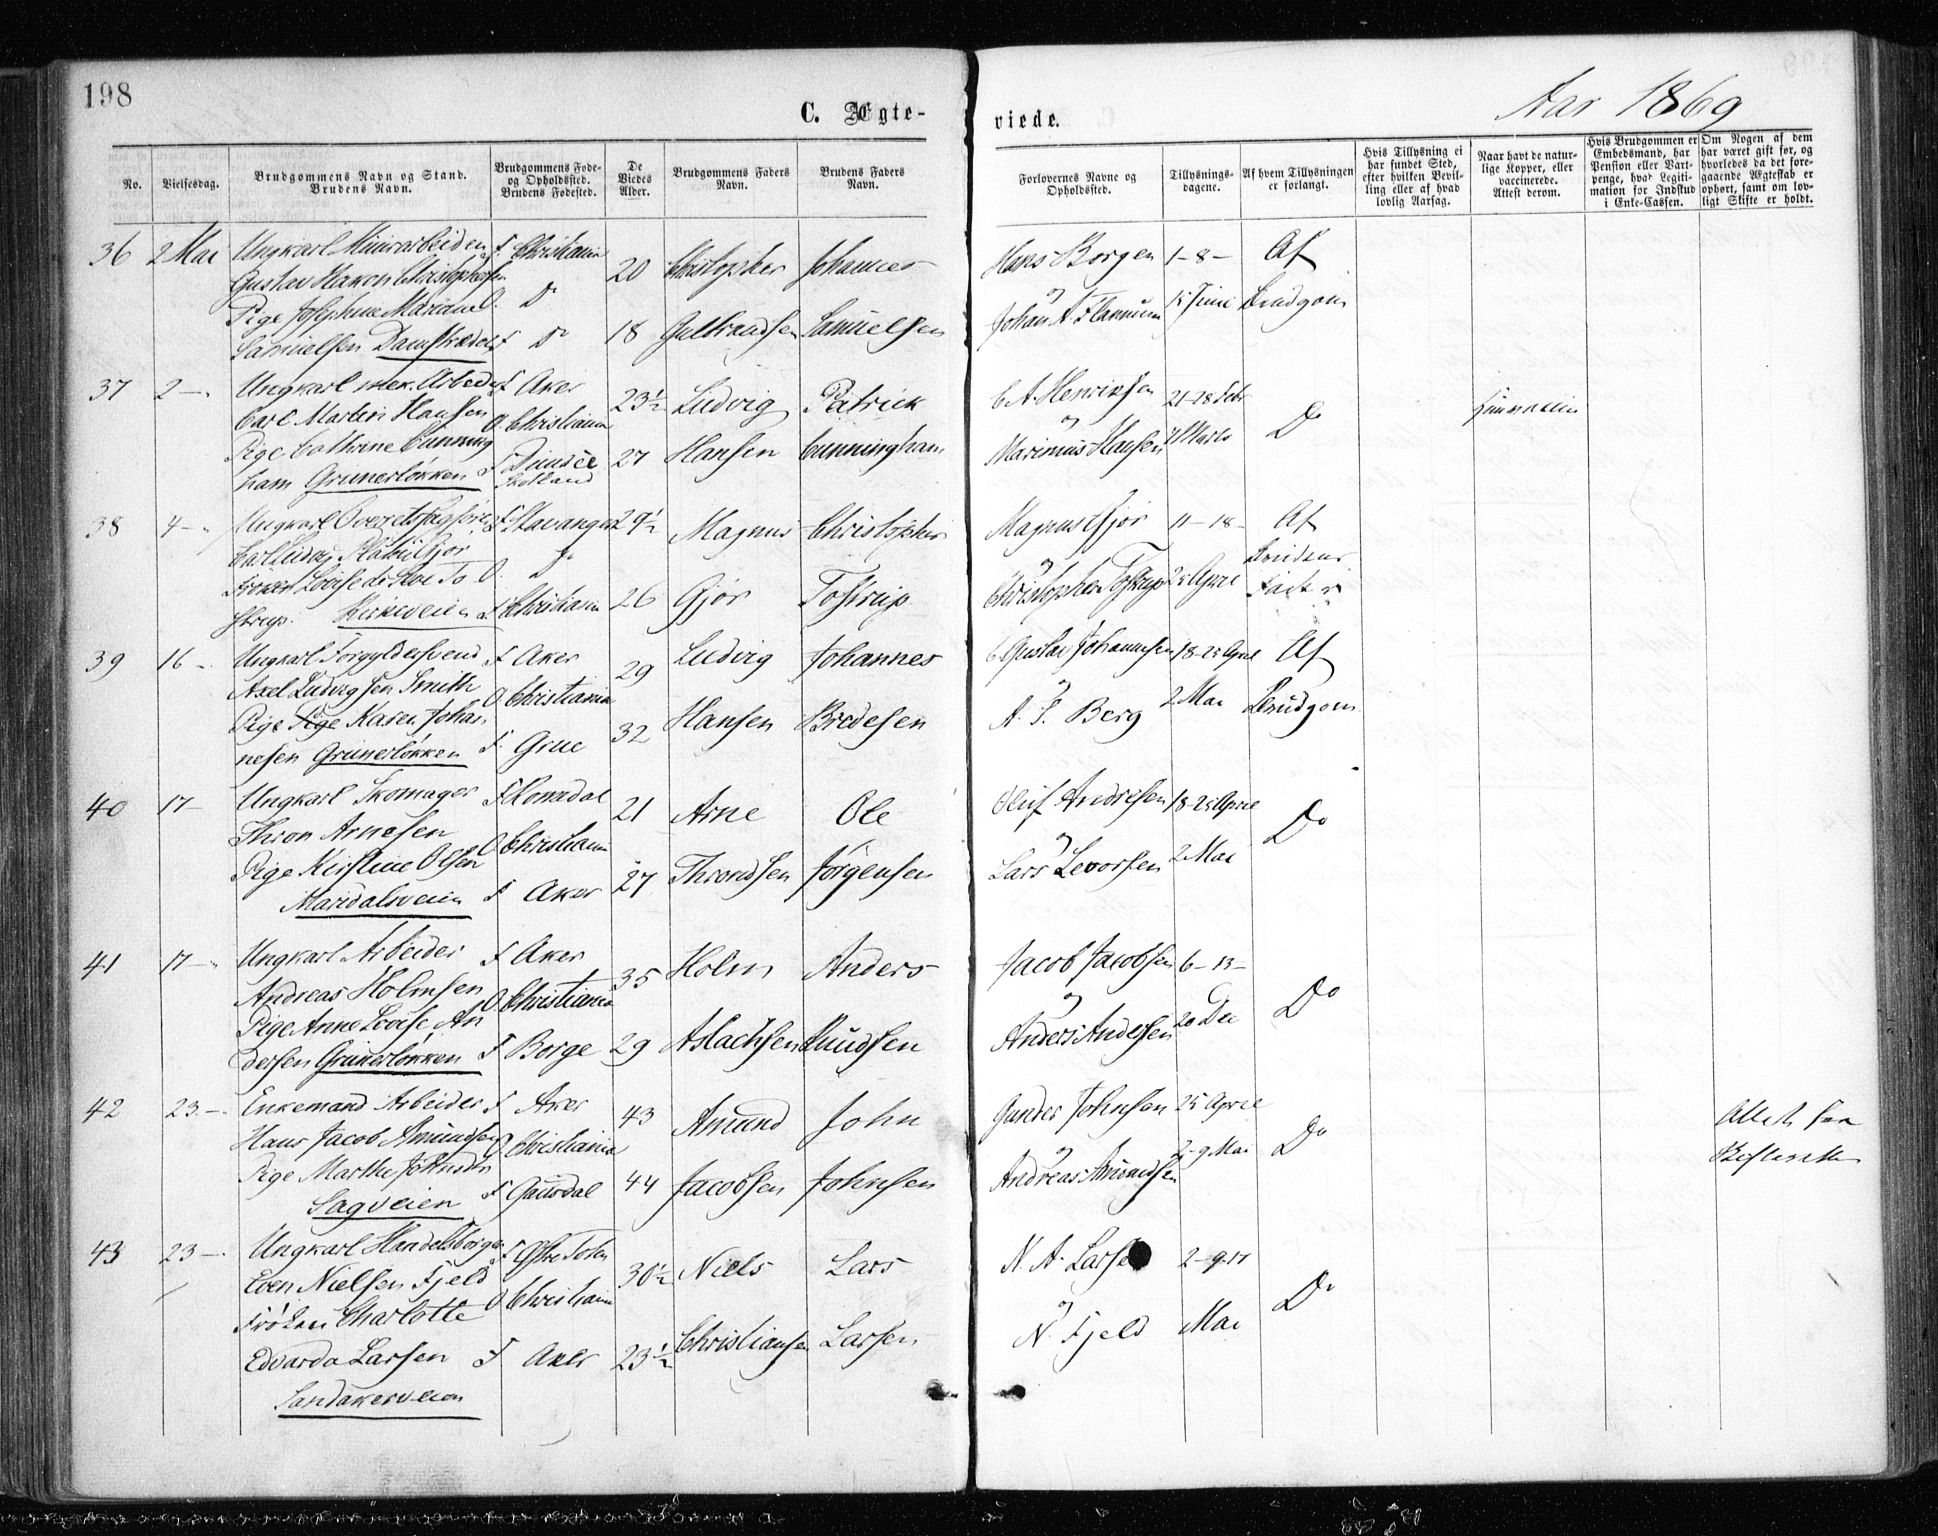 198
C. Ægte-
viede.
Aar 1869
No.
Vielsesdag.
Brudgommens Navn og Stand.
Brudens Navn.
Brudgommens Føde-
og Opholdssted.
Brudens Fødested.
De
Viedes
Alder.
Brudgommens Faders
Navn.
Brudens Faders
Navn.
Forlovernes Navne og
Opholdssted.
Tillysnings-
dagene.
Af hvem Tillysningen
er forlangt.
Hvis Tillysning ei
har fundet Sted,
efter hvilken Bevil-
ling eller af hvad
lovlig Aarsag.
Naar havt de natur-
lige Kopper, eller
vaccinerede.
Attest derom.
Hvis Brudgommen er
Embedsmand, har
Pension eller Vart-
penge, hvad Legiti-
mation for Indskud
i Enke-Cassen.
Om Nogen af dem
har været gift før, og
hvorledes da det fore-
gaaende Ægteskab er
ophørt, samt om lov-
ligt Skifte er holdt.
36 2 Mai Ungkarl F Christiania 20 Christopher Johannes Hans Borgen 1-8- Af
Gustav Hakon Christophersen O. Do
Pige Josephine Mariane og 15 Brudgom
Samuelsen Damstrædet F Do 18 Gulbrandsen Samuelsen Johan A.
37 2 - Ungkarl mek. Arbeider F Aker 23½ Ludvig Patrick C. A. Henriksen 21-28 Febr Do
Carl Martin Hansen O Christiania og
Pige Cathrine Cunning F Dundee 27 Hansen Cunningham Marinius Hansen 7 Marts
ham Grunerløkken Skotland
38 4 - Ungkarl Overretssagfører F Stavanger 29½ Magnus Christopher Magnus Gjør 11-18- Af
Carl Ludvig Gjør O. Do og Brudens
Frøken Lovise To
strup. Kirkeveien F Christiania 26 Gjør Tostrup Christopher Tostrup 25 April Fader
39 16 - Ungkarl Forgyldersvend F Aker 29 Ludvig Johannes C. Gustav Johannesen 18-25 April Af
Axel Ludvigsen Smith O Christiania og
Pige Pige Karen Johan 32 Hansen Bredesen A. F. Berg 2 Mai Brudgom
nesen Grunerløkken F. Grue
40 17 - Ungkarl Skomager F Romsdal 21 Arne Ole Oluf Andresen 18-25 April Do
Thron Arnesen O. Christiania og
Pige Kirstine Olsen 27 Throndsen Jørgensen Lars Levorsen 2 Mai
Maridalsveien F Aker
41 17 - Ungkarl Arbeider F Aker 35 Holm Anders Jacob Jacobsen 6-13- Do
Andreas Holmsen O. Christiania og
Pige Anne Lovise An 20 Dec
dersen Grunerløkken F Borge 29 Aslachsen Knudsen Anders Andersen
42 23 - Enkemand Arbeider F Aker 43 Amund John Gunder Johnsen 25 April Do Attest fra
Hans Jacob Amundsen O Christiania og 2-9 Mai Skifteretten
Pige Marthe Johnsdtr F Gausdal 44 Jacobsen Johnsen Andreas Amundsen
Sagveien
43 23 - Ungkarl Handelsborger F Østre Toten 30½ Niels Lars N. A. Larsen 2-9-17 Do
Even Nielsen Fjeld O Christiania og
Frøken Charlotte N. Fjeld Mai
Edvarda Larsen F Aker 23½ Christiansen Larsen
Sandakerveien